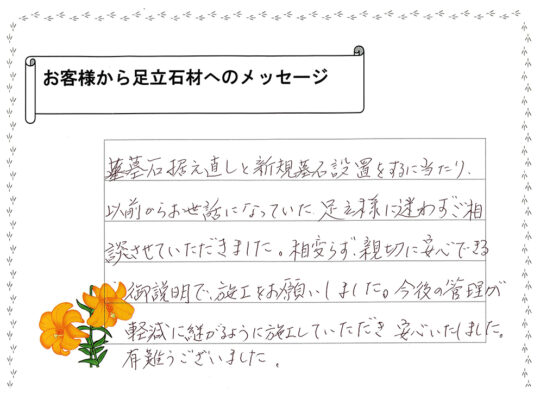 お客様から足立石材へのメッセージ
墓石据え直しと新規墓石設置をするに当たり、
以前からお世話になっていた足立様に迷わずご相
談させていただきました。相変らず、親切に安心できる
御説明で、施工をお願いしました。今後の管理が
軽減に継がるように施工していただき安心いたしました。
有難うございました。